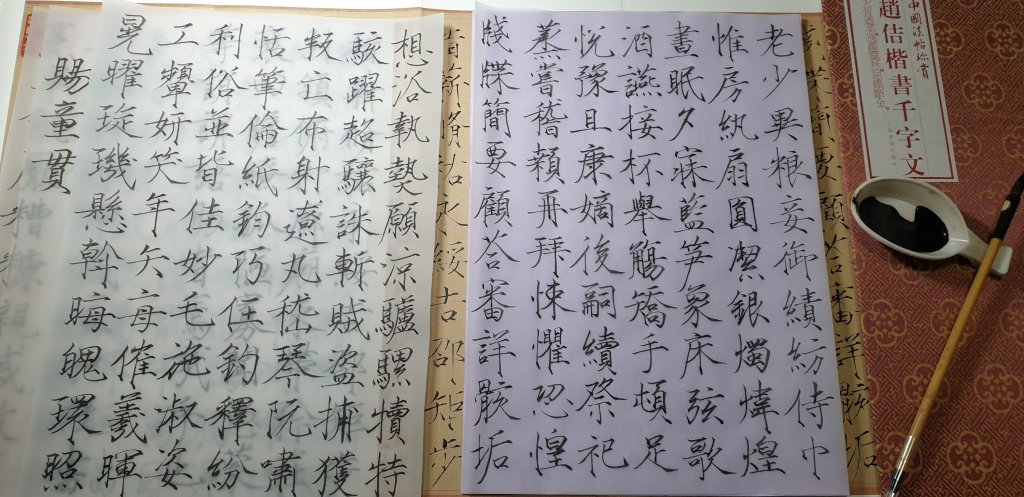 中國法帖珍賞
趙佶楷書千字文
牋牒簡要顧答審詳骸垢
老少異粮妾御績紡侍巾
惟房紈扇圓潔銀燭煒煌
晝眠夕寐藍笋象床弦歌
酒讌接杯舉觴矯手頓足
悅豫且康嫡後嗣續祭祀
蒸嘗稽顙再拜悚懼恐惶
牋牒簡要顧答審詳骸垢
指薪脩祜永綏吉邵矩步
想浴執熱願涼驢騾犢特
駭躍超驤誅斬賊盜捕獲
叛亡布射遼丸嵇琴阮嘯
恬筆倫紙鈞巧任釣釋紛
利俗並皆佳妙毛施淑姿
工顰妍笑年矢每催羲暉
晃曜琁璣懸斡晦魄環照
賜童貫